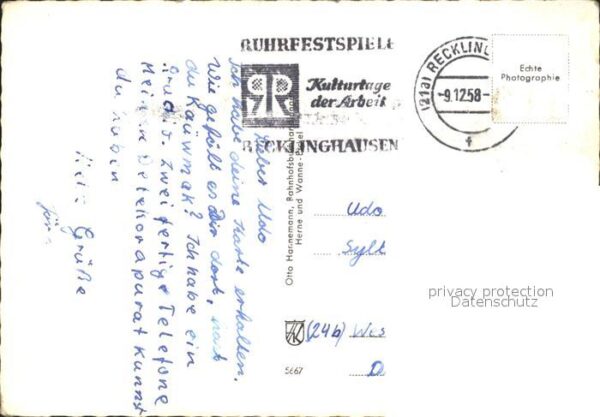 RUHRFESTSPIELE
Kulturtage
der Arbeit
RECKLINGHAUSEN
(21a) RECKLING
-9.12.58-
f
Echte
Photographie
Lieber Udo
Ich habe deine Karte erhalten.
Wie gefällt es Dir dort,
du Kauwmak? Ich habe ein
zwei fertige Telefone
Meinen Detektorapurat kunnst
du haben
Viele Grüße
Otto Hannemann, Bahnhofsbuchhandl
Herne und Wanne-Eickel
Udo
Sylt
(24b) Wes
D
5667
privacy protection
Datenschutz